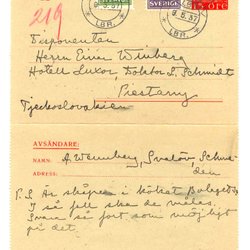 219
SVERIGE
15 ÖRE
9.5.37
LBR.
LBR.
Disponenten
Herrn Einar Winberg
Hotell Luxor, Doktor L. Schmidt
Piestany
Tjeckoslovakien
AVSÄNDARE:
NAMN: A. Wennberg, Svalöv, Schwe-
den
ADRESS:
P.S. Är skåpen i köket Bolagets
I så fall ska de målas.
Svara så fort som möjligt
på det.